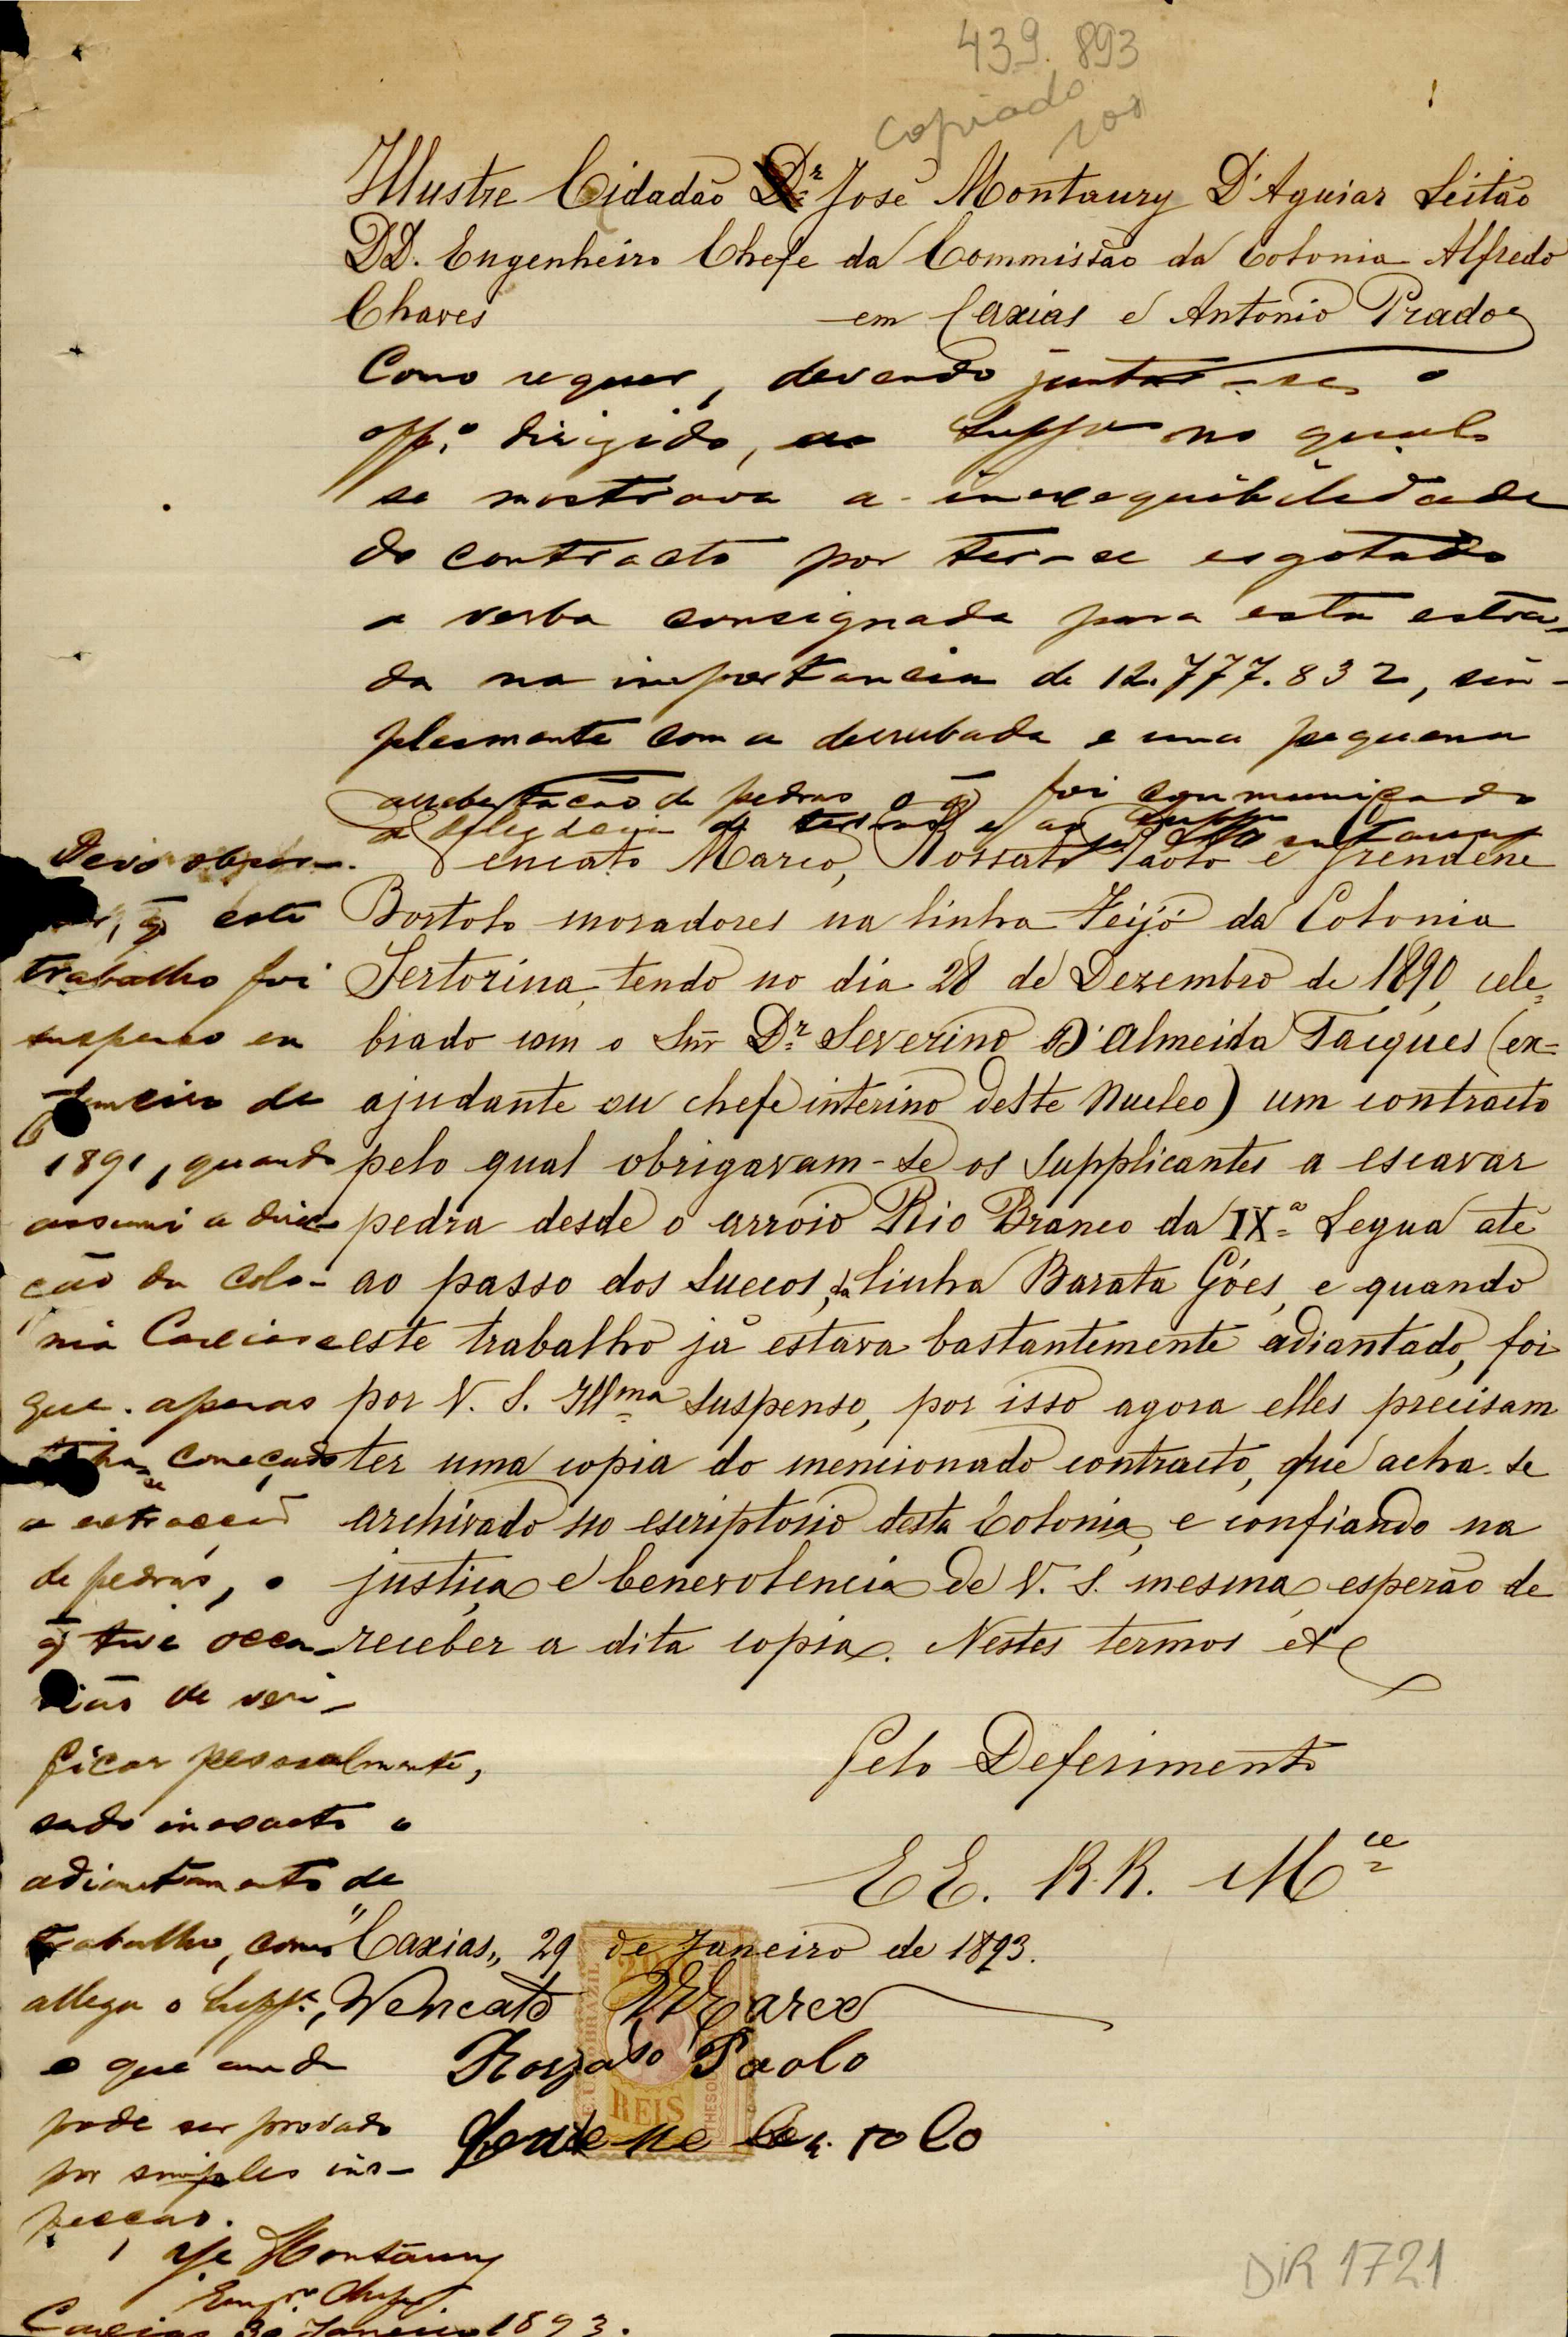 439. 893
Copiado
100
Illustre Cidadão Dr José Montaury D'Aguiar Leitão
DD. Engenheiro Chefe da Commissão da Colonia Alfredo
Chaves em Caxias e Antonio Prado
Como requer, devendo juntar-se o
offo. dirigido, ao Suppe no qual
se mostrava a inexequibilidade
do contracto por ter-se esgotado
a verba consignada para esta estra-
da na importancia de 12.777.832, sim-
plesmente com a derrubada e uma pequena
arrebentação de pedras o q̄ foi communicado
Vencato Marco, Rossato Paolo e Grendene
Bortolo moradores na linha Feijó da Colonia
Sertorina, tendo no dia 28 de Dezembro de 1890, cele=
brado com o Snr Dr. Severino D'Almeida Tacques (ex=
ajudante ou chefe interino deste Nucleo) um contracto
pelo qual obrigavam-se os Supplicantes a escavar
pedra desde o arroio Rio Branco da IXª Legua até
ao passo dos Suecos, da linha Barata Góes, e quando
este trabalho já estava bastantemente adiantado, foi
por V. S. Illma Suspenso, por isso agora elles precisam
ter uma copia do mencionado contracto, que acha-se
archivado no escriptorio desta Colonia, e confiando na
justiça e benevolencia de V. S. mesma, esperão de
receber a dita copia. Nestes termos etc
Pelo Deferimento
EE. R.R. Mce
"Caxias,, 29 de Janeiro de 1893.
Vencato Marco
Rossato Paolo
REIS
Devo obser-
q̄ este
trabalho foi
suspenso em
de
1891, quando
assumi a direc-
ção da Colo-
nia Caxias e
que apenas
começado
a extracção
de pedras, o
q̄ tive occa-
sião de veri-
ficar pessoalmente,
sendo inexacto o
adiantamento de
trabalho, como
allega o Suppe,
o que ainda
pode ser provado
por simples ins-
pecção.
J Montaury
Engro. Chefe
Caxias 30 Janeiro 1893.
DiR 1721